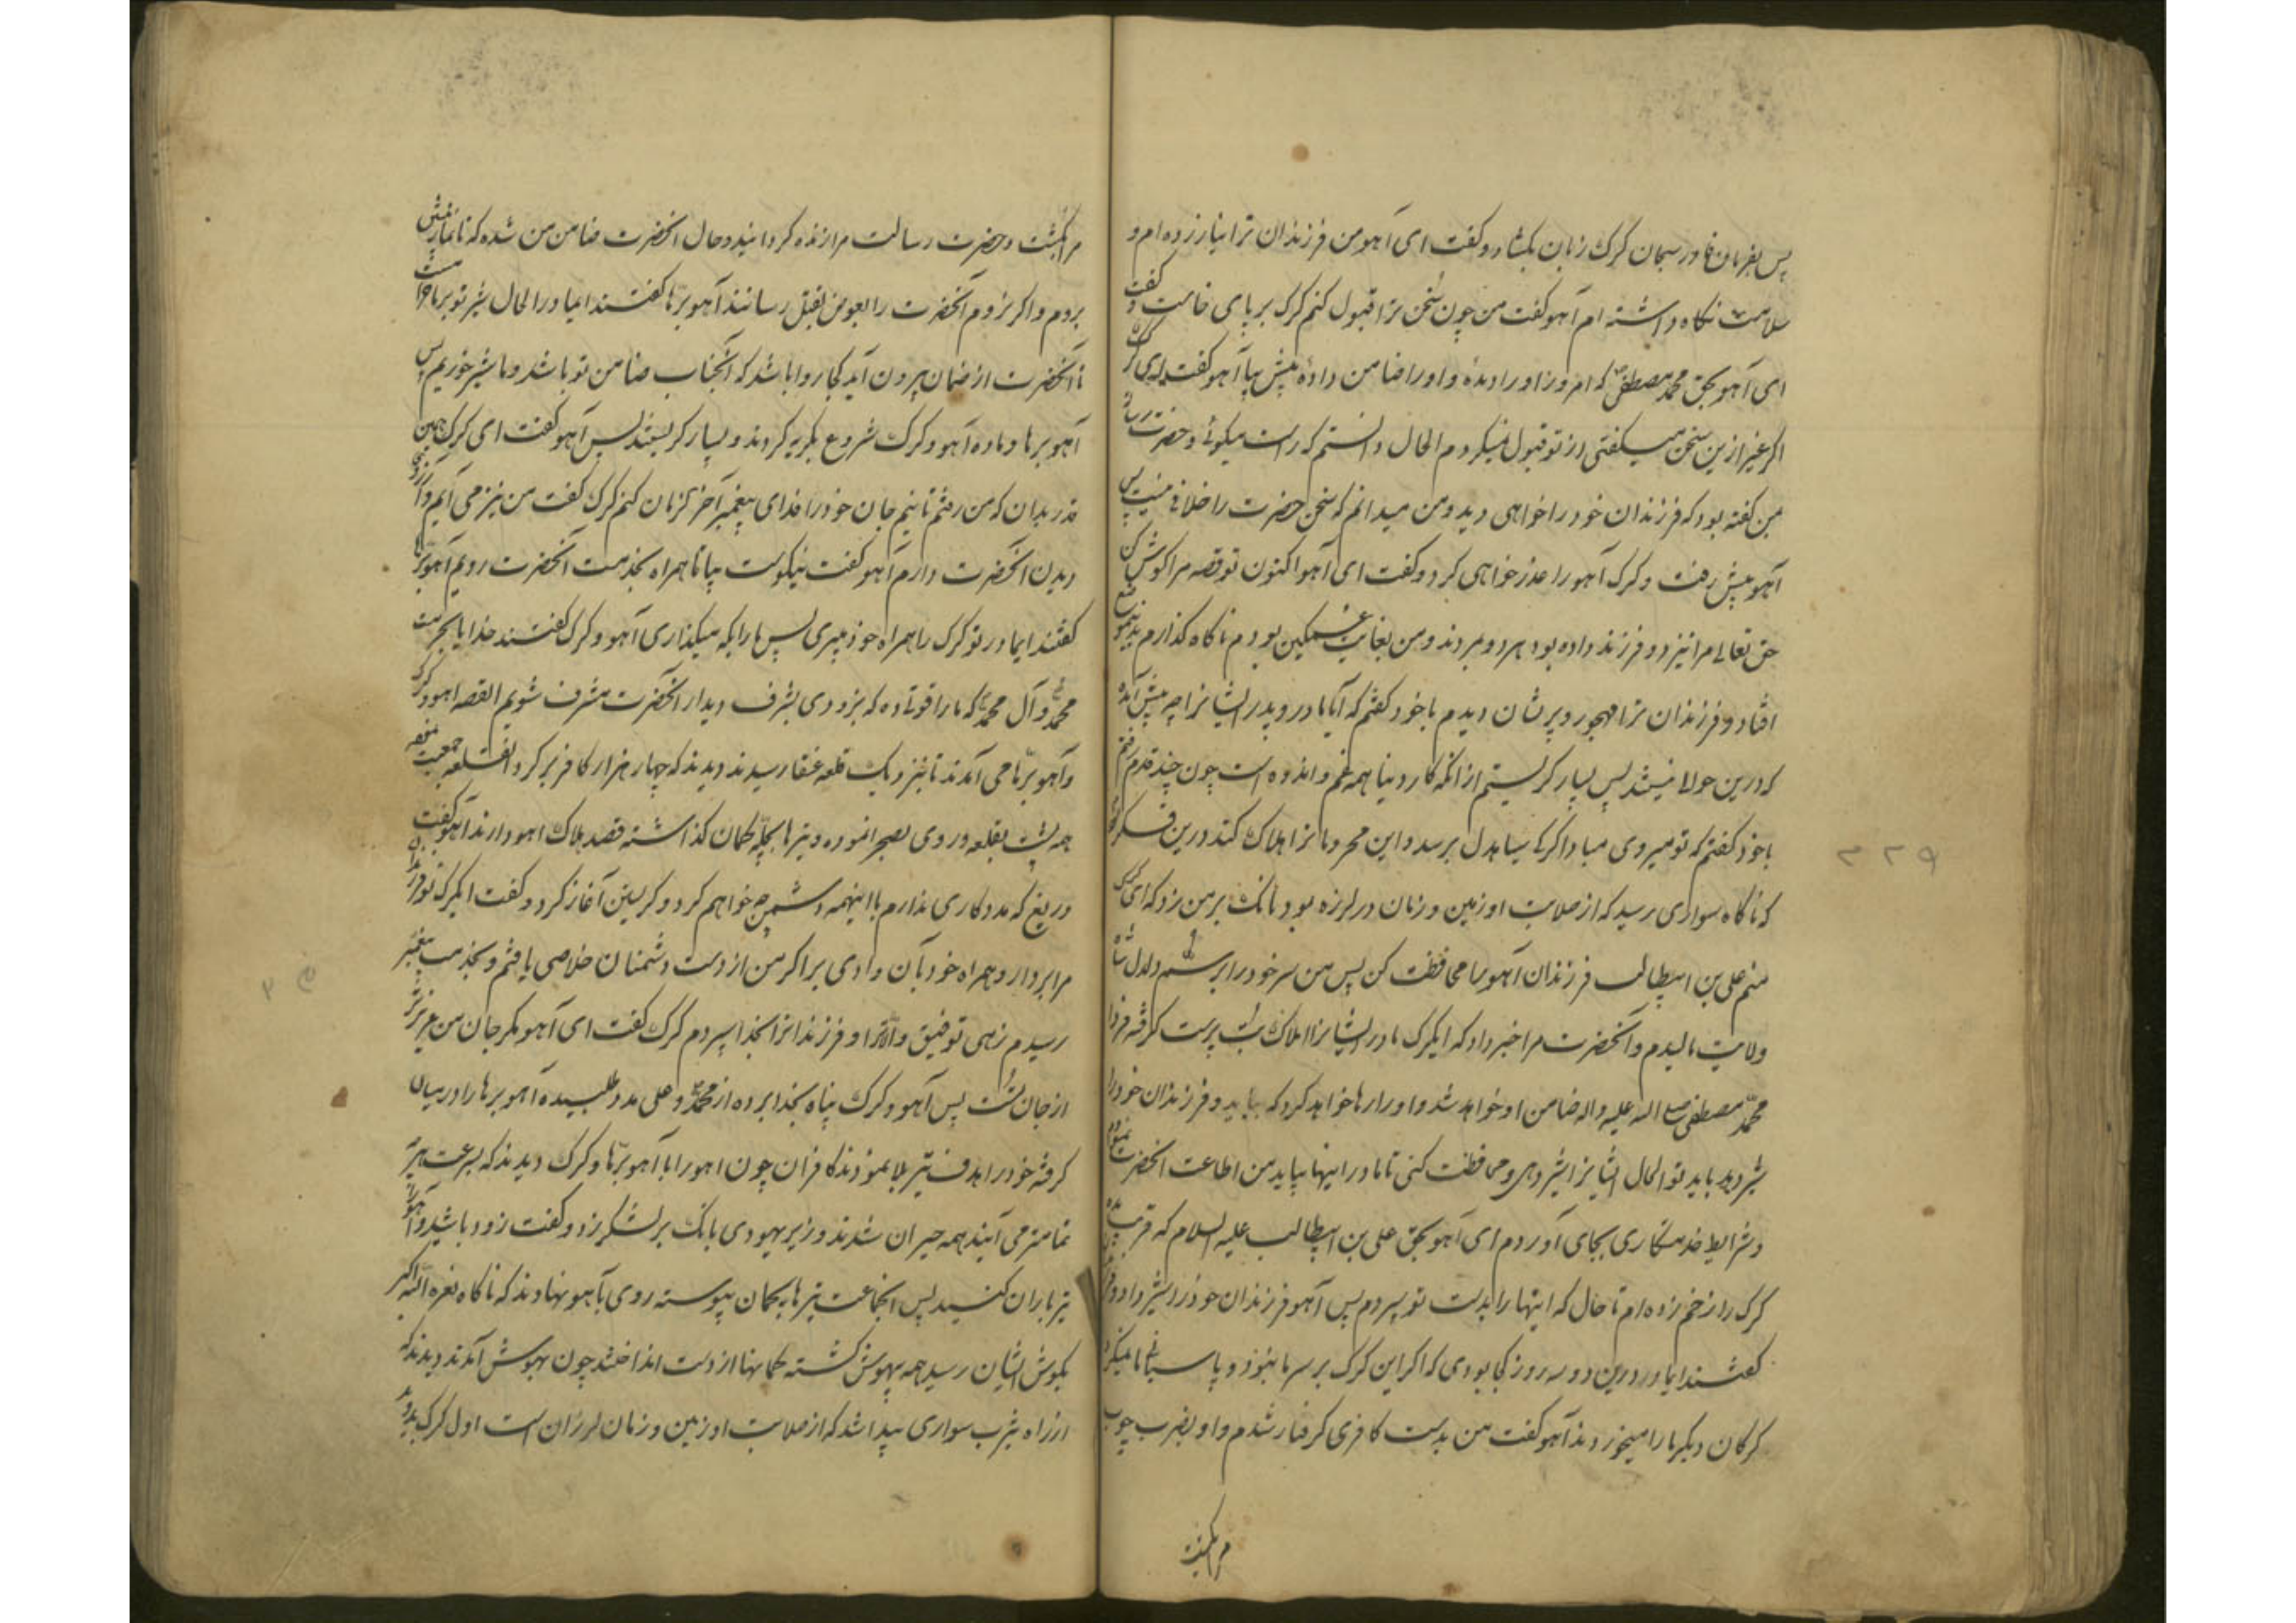 پس بفرمان قادر سبحان کرک زبان بکشاد و کفت ای آهو من فرزندان ترا نیازرده ام و
سلامت نکاه داشته ام آهو کفت من چون سخن ترا قبول کنم کرک بر پای خاست و کفت
ای آهو بحق محمد مصطفی که امروز او را دیدهٔ و او را ضامن دادهٔ پیش بیا آهو کفت ای کرک
اکر غیر ازین سخن میکفتی از تو قبول نمیکردم الحال دانستم که راست میکوئی و حضرت رسالت
بمن کفته بود که فرزندان خود را خواهی دید و من میدانم که سخن حضرت را خلافی نیست پس
آهو پیش رفت و کرک آهو را عذر خواهی کرد و کفت ای آهو اکنون تو قصه مرا کوش کن
حق تعالی مرا نیز دو فرزند داده بود هر دو مردند و من بغایت غمکین بودم ناکاه کذارم بدینموضع
افتاد و فرزندان ترا مهجور و پرشان دیدم با خود کفتم که آیا مادر و پدر ایشانرا چه پیش آمده
که درین حوالی نیستند پس بسیار کریستم از آنکه کار دنیا همه غم و اندوه است چون چند قدم رفتم
با خود کفتم که تو میروی مبادا کرک سیاهدل برسد و این محرومانرا هلاک کند درین فکر بودم
که ناکاه سواری رسید که از صلابت او زمین و زمان در لرزه بود بانک بر من زد که ای کرک
منم علی بن ابیطالب فرزندان آهو را محافظت کن پس من سر خود را بر سم دلدل شاه
ولایت مالیدم و آنحضرت مرا خبر داد که ایکرک مادر ایشانرا املاک بت پرست کرفته فردا
محمد مصطفی صلی الله علیه و اله ضامن او خواهد شد و او را رها خواهد کرد که بیاید و فرزندان خود را
شیر دهد باید تو الحال ایشانرا شیر دهی و محافظت کنی تا مادر اینها بیاید من اطاعت آنحضرت نمودم
و شرایط خدمتکاری بجای آوردم ای آهو بحق علی بن ابیطالب علیه السلام که قریب ده
کرک را زخم زده ام تا حال که اینها را بدست تو سپردم پس آهو فرزندان خود را شیر داد و
کفتند ایمادر درین دو سه روز کجا بودی که اکر این کرک بر سر ما نبود و پاسبانی ما نمیکرد
کرکان دیکر ما را میخوردند آهو کفت من بدست کافری کرفتار شدم و او بضرب چوب
مرا بکشت
مرا بکشت و حضرت رسالت مرا زنده کردانید و حال آنحضرت ضامن من شده که تا نماز پیشی
بروم و اکر نروم آنحضرت را بعوض بقتل رسانند آهو برّها کفتند ایمادر الحال شیر تو بر ما حرامست
تا آنحضرت از ضمان بیرون آید کجا روا باشد که آنجناب ضامن تو باشد و ما شیر خوریم پس
آهو برها و ماده آهو و کرک شروع بکریه کردند و بسیار کریستند پس آهو کفت ای کرک همین
قدر بدان که من رفتم تا نیم جان خود را فدای پیغمبر آخر الزمان کنم کرک کفت من نیز می آیم و آرزوی
دیدن آنحضرت دارم آهو کفت نیکوست بیا تا همراه بخدمت آنحضرت رویم آهو برّها
کفتند ایمادر تو کرک را همراه خود میبری پس ما را بکه میکذاری آهو و کرک کفتند خدایا بحرمت
محمد و آل محمد که ما را قوتی ده که بزودی بشرف دیدار آنحضرت مشرف شویم القصه آهو و کرک
و آهو برّها می آمدند تا بنزدیک قلعه عنقا رسیدند دیدند که چهار هزار کافر بر کرد آنقلعه جمعیت نموده
همه پشت بقلعه و روی بصحرا نموده و تیرها بچلّه کمان کذاشته قصد هلاک آهو دارند آهو کفت
دریغ که مددکاری ندارم با اینهمه دشمن چه خواهم کرد و کریستن آغاز کرد و کفت ایکرک تو فرزندان
مرا بردار و همراه خود بآن وادی بر اکر من از دست دشمنان خلاصی یافتم و بخدمت پیغمبر
رسیدم زهی توفیق و الا ترا و فرزندانرا بخدا سپردم کرک کفت ای آهو مکر جان من عزیزتر
از جان تست پس آهو و کرک پناه بخدا برده از محمد و علی مدد طلبیده آهو برها را در میان
کرفته خود را هدف تیر بلا نمودند کافران چون آهو را با آهو برّها و کرک دیدند که بسرعت هرچه
تمامتر می آیند همه حیران شدند وزیر یهودی بانک بر لشکر زد و کفت زود باشید و آهو را
تیر باران کنید پس آنجماعت تیرها بکمان پیوسته روی بآهو نهادند که ناکاه نعره الله اکبر
بکوش ایشان رسید همه بیهوش کشته کمانها از دست انداختند چون بهوش آمدند دیدند که
از راه یثرب سواری پیدا شد که از صلابت او زمین و زمان لرزان است اول کرک بدوید